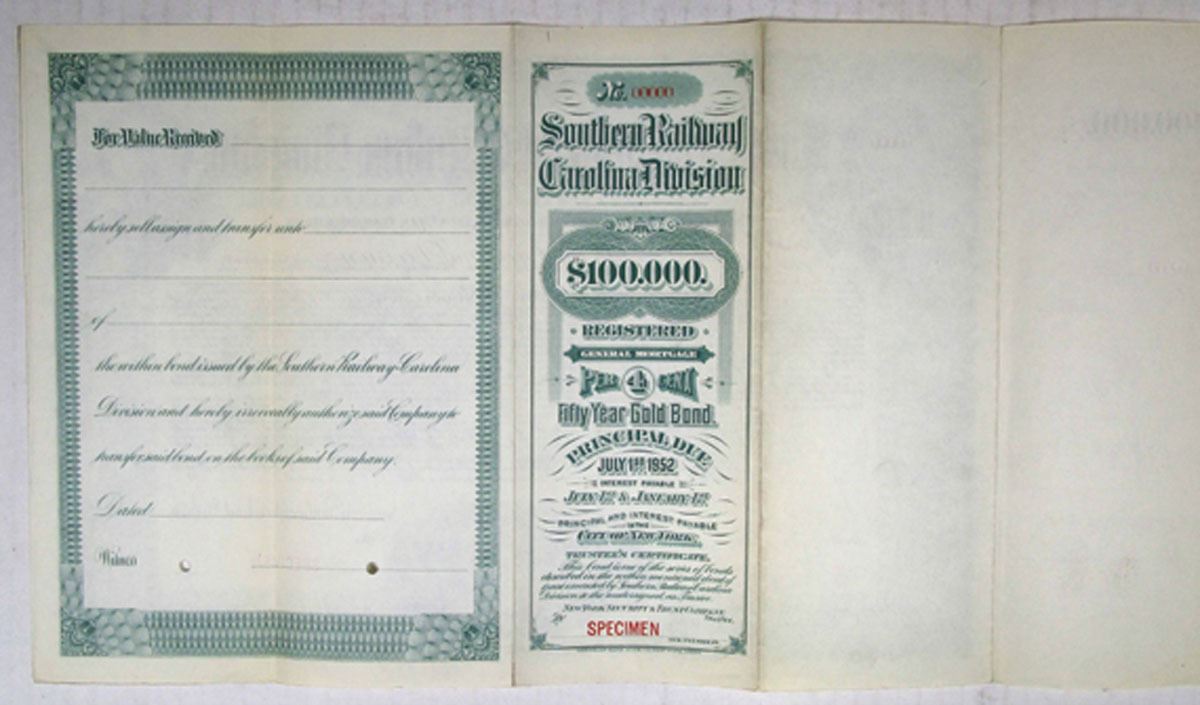 For Value Received
hereby sell assign and transfer unto
of
the within bond issued by the Southern Railway-Carolina
Division and hereby irrevocably authorize said Company to
transfer said bond on the books of said Company.
Dated
Witness
No. 00000
Southern Railway
Carolina Division
$100.000.
REGISTERED
GENERAL MORTGAGE
PER 4 CENT
Fifty Year Gold Bond.
PRINCIPAL DUE
JULY 1ST 1952
INTEREST PAYABLE
JULY 1ST & JANUARY 1ST
PRINCIPAL AND INTEREST PAYABLE
IN THE
CITY OF NEW YORK.
TRUSTEE'S CERTIFICATE.
This bond is one of the series of bonds
described in the within mentioned deed of
trust executed by Southern Railway Carolina
Division to the undersigned, as Trustee.
NEW YORK SECURITY & TRUST COMPANY
Trustee.
By
SPECIMEN